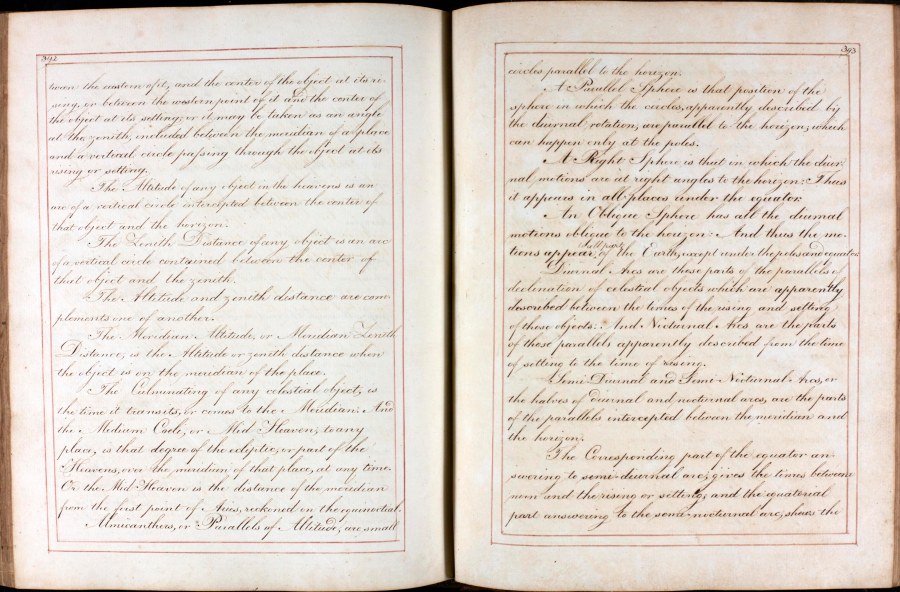 392
tween the eastern of it, and the center of the object at its re-
sing, or between the western point of it and the center of
the object at its setting; or it may be taken as an angle
at the zenith, included between the meridian of a place
and a vertical circle passing through the object at its
rising or setting.
The Altitude of any object in the heavens is an
arc of a vertical circle intercepted between the center of
that object and the horizon.
The Zenith Distance of any object is an arc
of a vertical circle contained between the center of
that object and the zenith.
The Altitude and zenith distance are com-
plements one of another.
The Meridian Altitude, or Meridian Zenith
Distance, is the Altitude or zenith distance when
the object is on the meridian of the place.
The Culminating of any celestial object, is
the time it transits, or comes to the Meridian. And
the Medium Coeli, or Mid Heaven, to any
place, is that degree of the ecliptic, or part of the
Heavens, over the meridian of that place, at any time.
Or the Mid Heaven is the distance of the meridian
from the first point of Aries, reckoned on the equinoctial.
Almicanthers, or Parallels of Altitude, are small
393
circles parallel to the horizon.
A Parallel Sphere is that position of the
sphere in which the circles, apparently described by
the diurnal rotation, are parallel to the horizon; which
can happen only at the poles.
A Right Sphere is that in which the diur-
nal motions are at right angles to the horizon: Thus
it appears in all places under the equator.
An Oblique Sphere has all the diurnal
motions oblique to the horizon: And thus the mo-
tions appear, in all parts of the Earth, except under the poles and equator.
Diurnal Arcs are those parts of the parallels of
declination of celestial objects which are apparently
described between the times of the rising and setting
of those objects: And Nocturnal Arcs are the parts
of those parallels apparently described from the time
of setting to the time of rising.
Semi-Diurnal and Semi-Nocturnal Arcs, or
the halves of diurnal and nocturnal arcs, are the parts
of the parallels intercepted between the meridian and
the horizon.
The Corresponding part of the equator an-
swering to semi-diurnal arc, gives the times between
noon and the rising or setting; and the equatorial
part answering to the semi-nocturnal arc, shews the